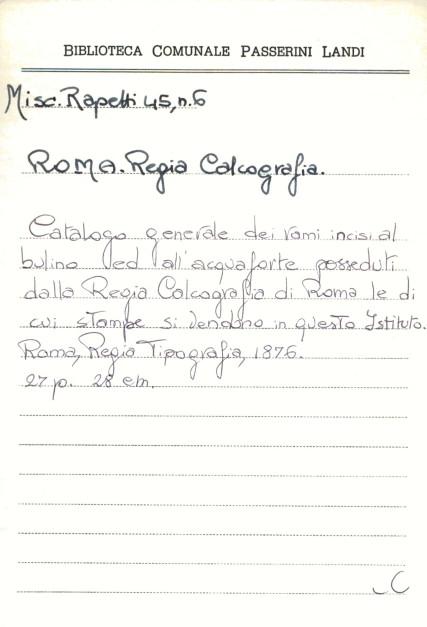 BIBLIOTECA COMUNALE PASSERINI LANDI
Misc. Rapetti 45, n. 6
ROMA. Regia Calcografia.
Catalogo generale dei rami incisi al
bulino ed all'acquaforte posseduti
dalla Regia Calcografia di Roma le di
cui stampe si vendono in questo Istituto.
Roma, Regia Tipografia, 1876.
27 p. 28 cm.
C